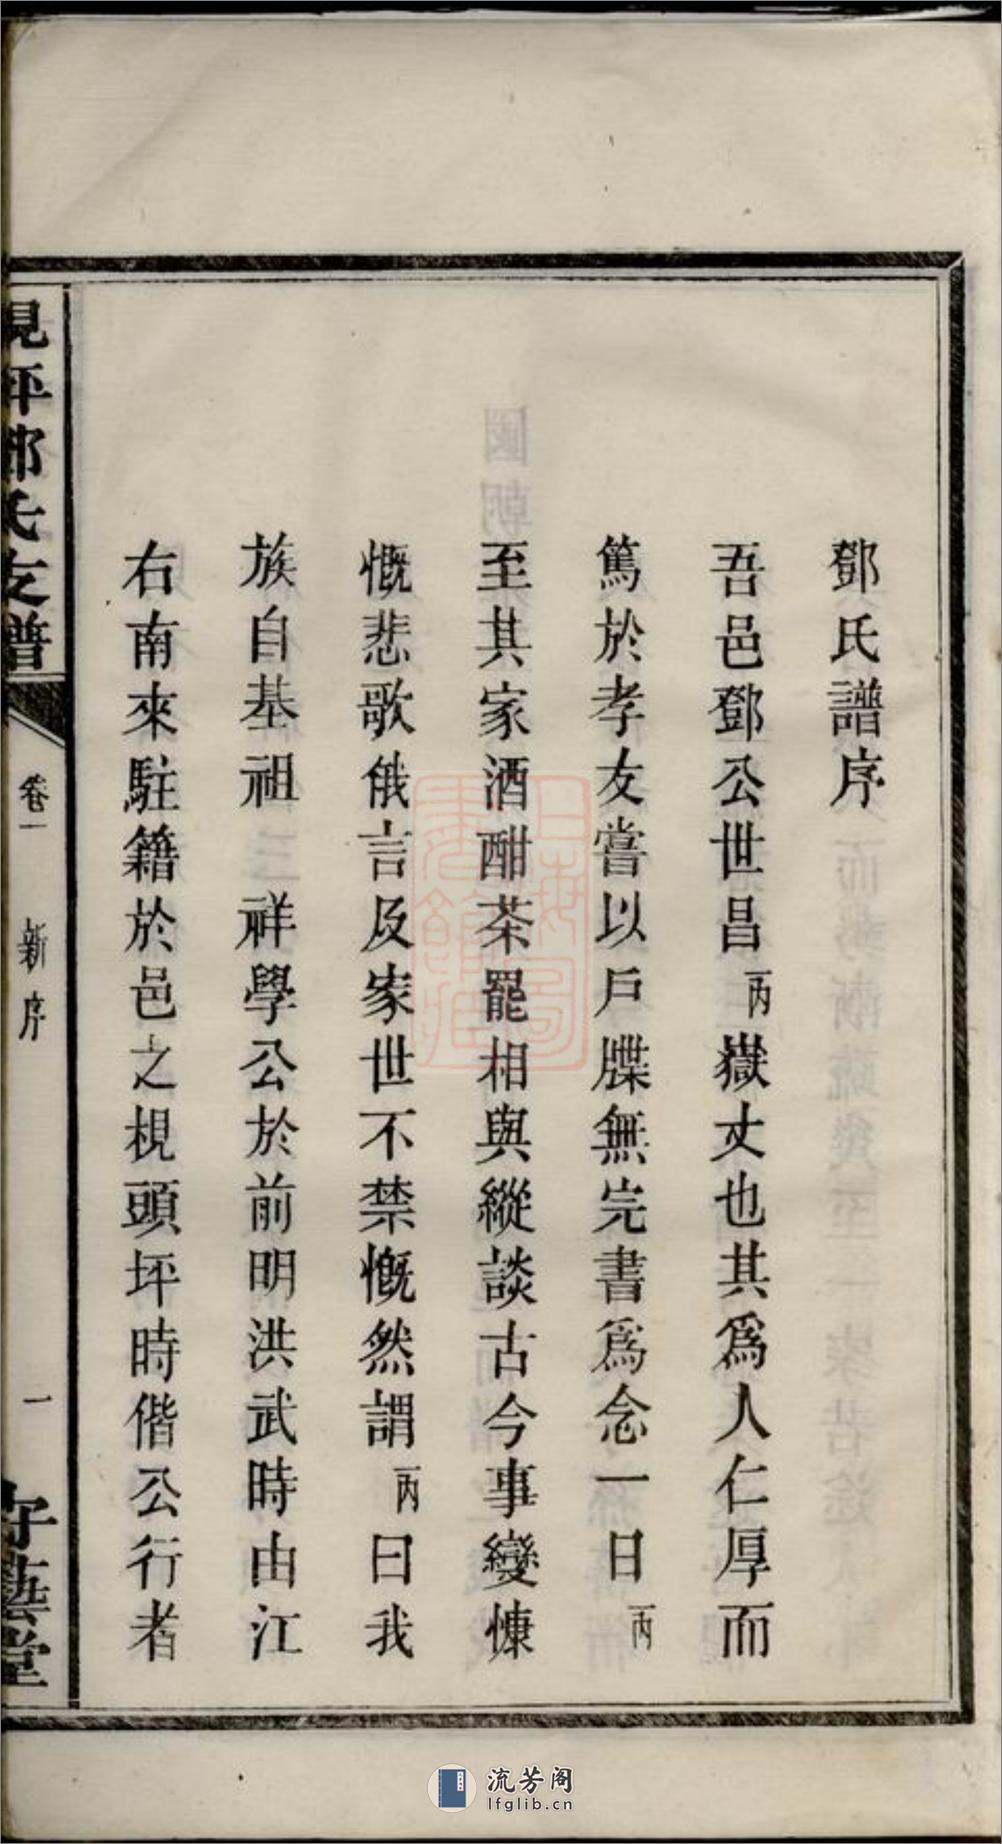 鄧氏譜序
吾邑鄧公世昌丙嶽丈也其爲人仁厚而
篤於孝友嘗以戶牒無完書爲念一日丙
至其家酒酣茶罷相與縱談古今事變慷
慨悲歌俄言及家世不禁慨然謂丙曰我
族自基祖 祥學公於前明洪武時由江
右南來駐籍於邑之梘頭坪時偕公行者
梘坪鄧氏支譜
卷一
新序
一
守藝堂
上海圖書館藏
流芳阁
lfglib.cn